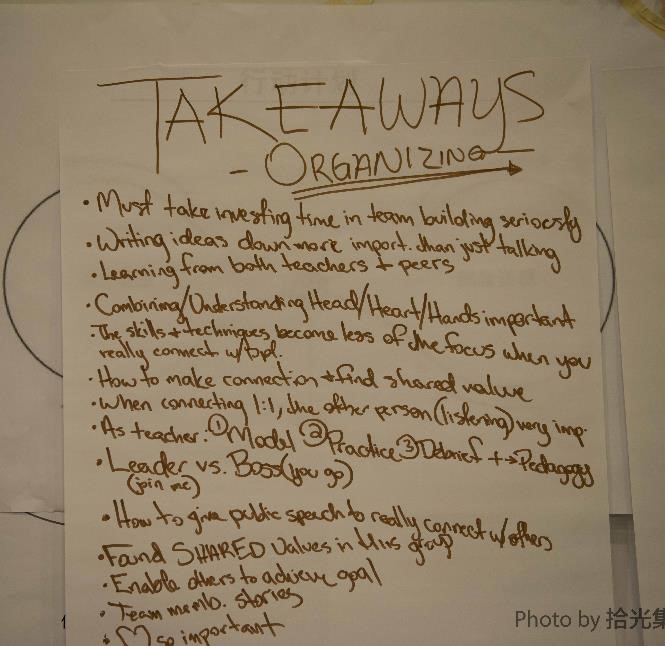 TAKEAWAYS
- ORGANIZING
• Must take investing time in team building seriously
• Writing ideas down more import. than just talking
• Learning from both teachers + peers
• Combining/Understanding Head/Heart/Hands important
• The skills + techniques become less of the focus when you
really connect w/ppl.
• How to make connection + find shared value
• When connecting 1:1, the other person (listening) very imp.
• As teacher: ① Model ② Practice ③ Debrief + → Pedagogy
• Leader vs. Boss (you go)
(join me)
• How to give public speech to really connect w/others
• Found SHARED values in this group
• Enable others to achieve goal
• Team memb. stories
• ♡ so important
Photo by 拾光集